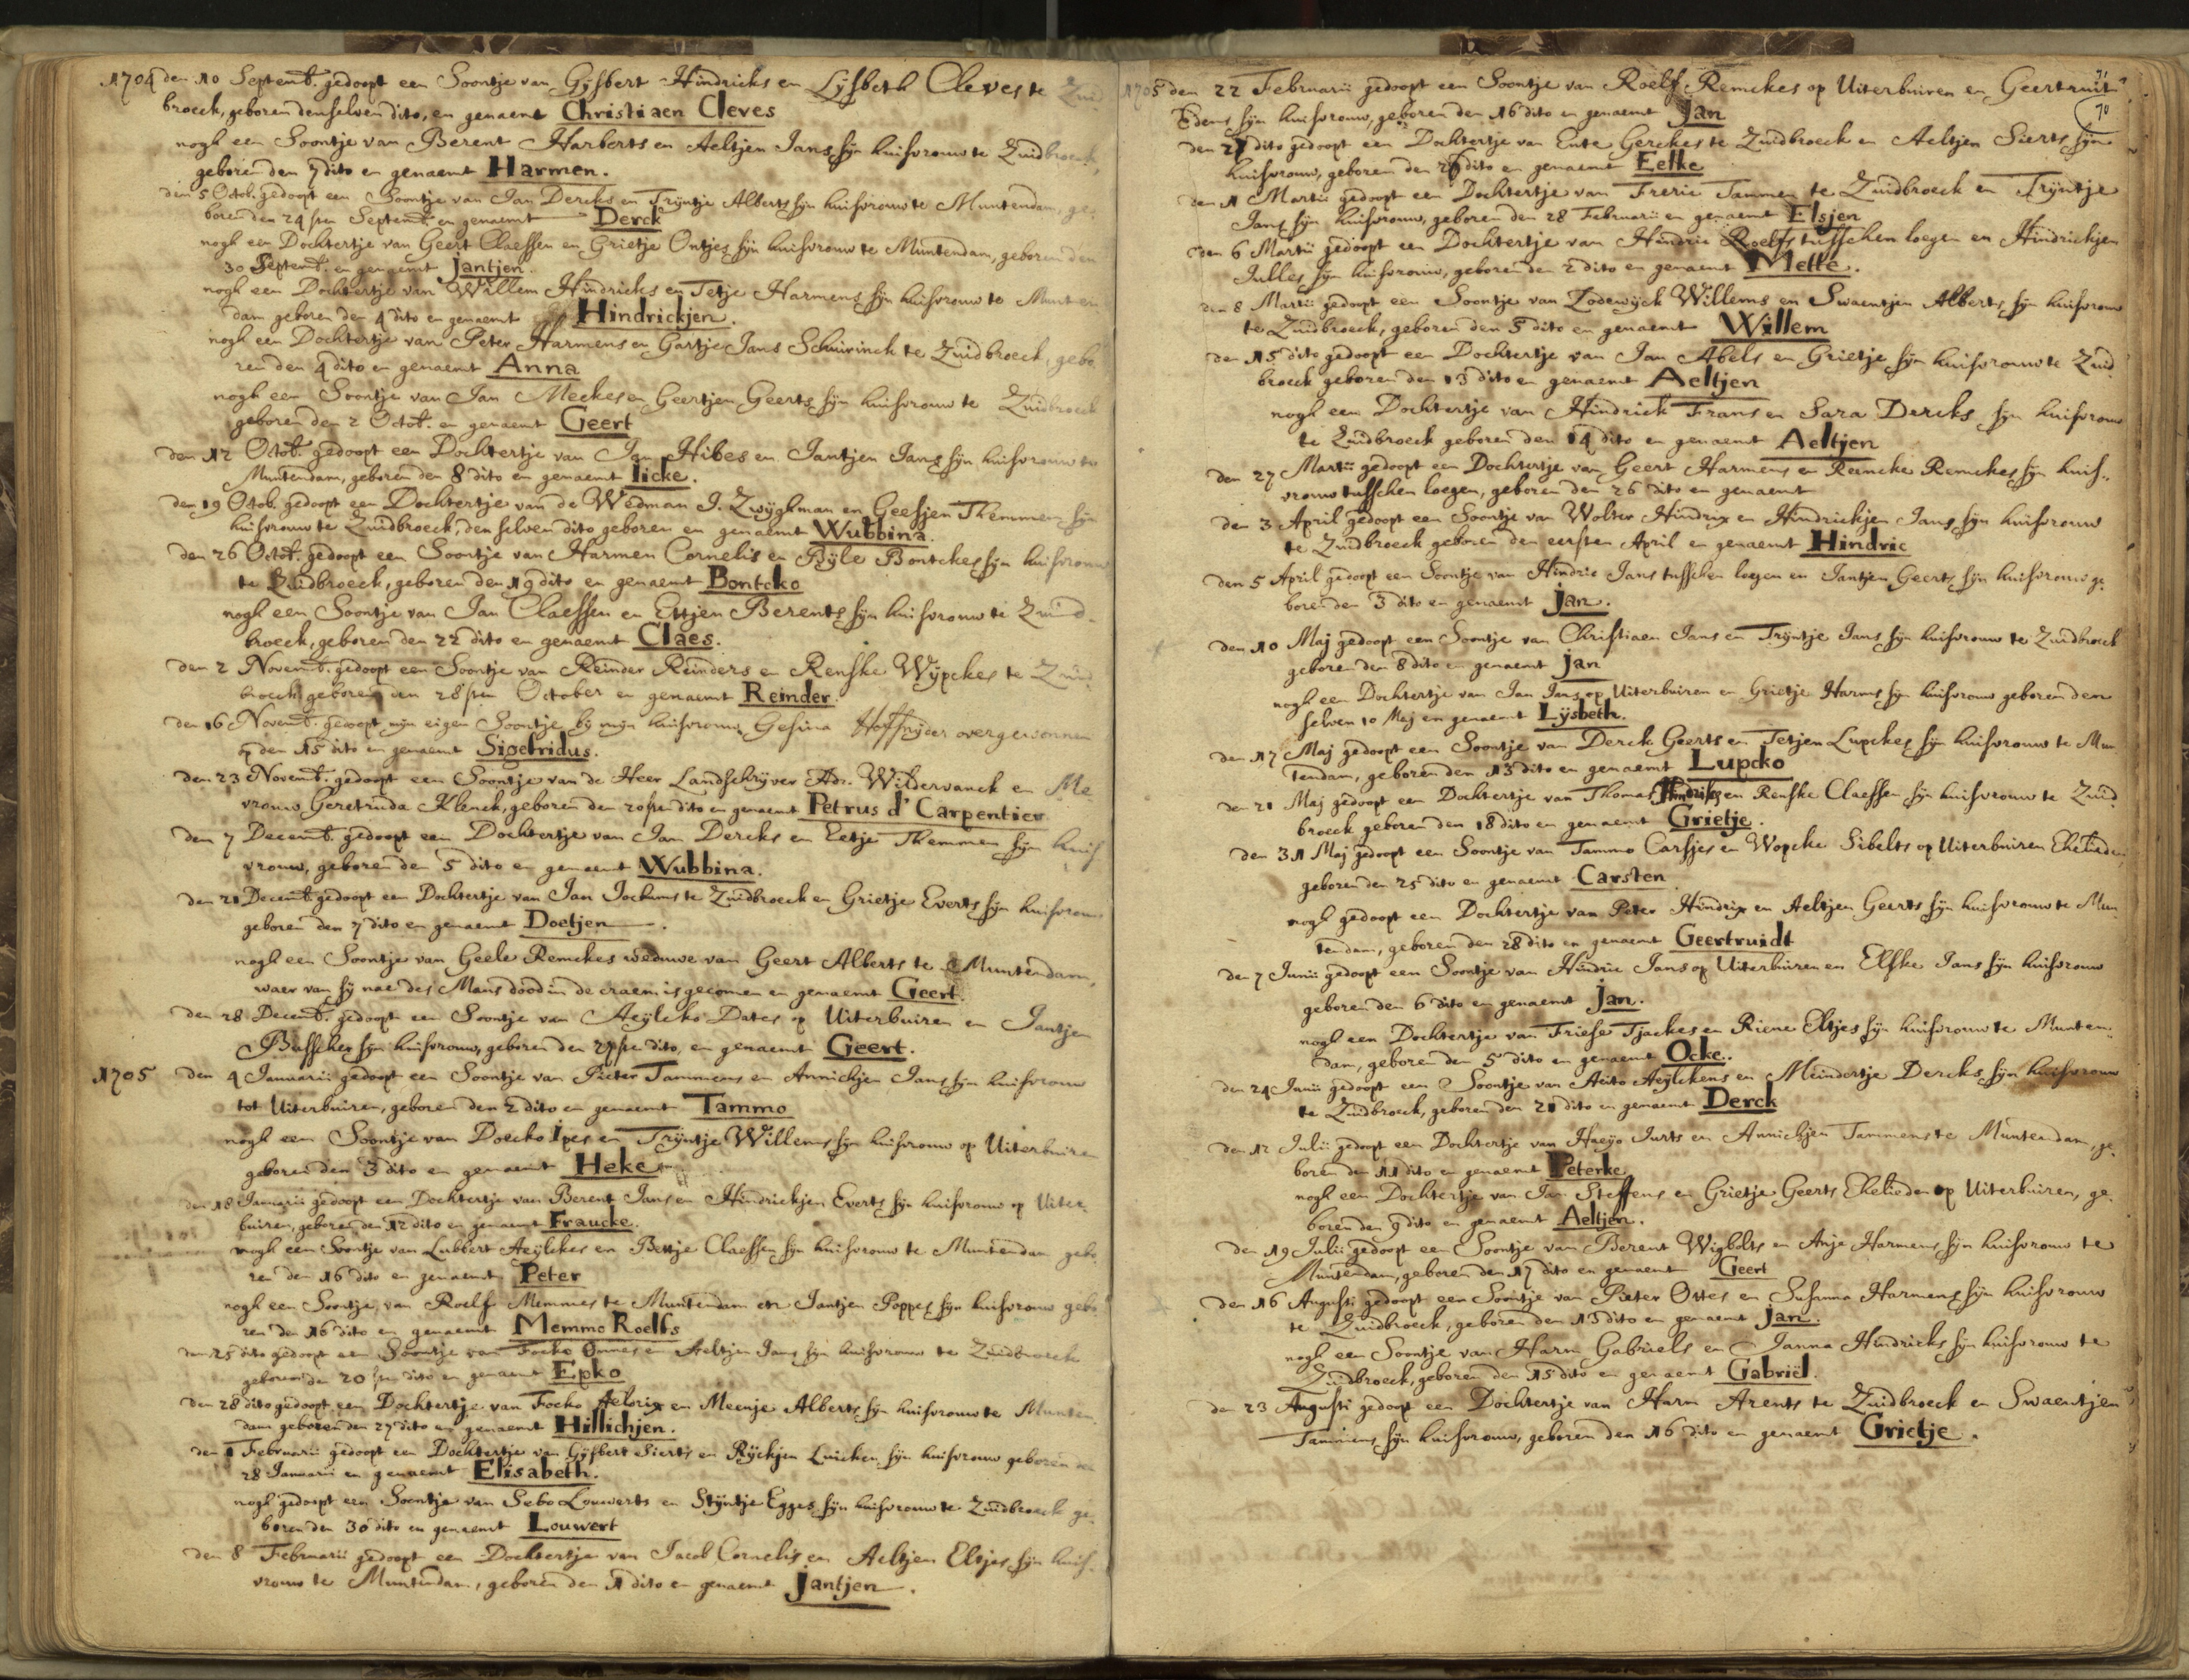 1704 den 10 Septemb. gedoopt een Soontje van Gijsbert Hindricks en Lijsbeth Cleves te Zuid
broeck, geboren denselven dito, en genaemt Christiaen Cleves
nogh een Soontje van Berent Harberts en Aeltjen Jans sijn huisvrouw te Zuidbroeck,
geboren den 7 dito en genaemt Harmen.
den 5 Octob. gedoopt een Soontje van Jan Dercks en Trijntje Alberts sijn huisvrouw te Muntendam, ge,
boren den 24 sten Septemb. en genaemt Derck
nogh een Dochtertje van Geert Claessen en Grietje Ontjes sijn huisvrouw te Muntendam, geboren den
30 Septemb. en genaemt Jantjen.
nogh een Dochtertje van Willem Hindricks en Tetje Harmens sijn huisvrouw te Munten
dam geboren den 4 dito en genaemt Hindrickjen.
nogh een Dochtertje van Peter Harmens en Gartje Jans Schuirinck te Zuidbroeck, gebo
ren den 4 dito en genaemt Anna
nogh een Soontje van Jan Meekes en Geertjen Geerts sijn huisvrouw te Zuidbroeck
geboren den 2 Octob. en genaemt Geert
den 12 Octob. gedoopt een Dochtertje van Jan Hibes en Jantjen Jans sijn huisvrouw te
Muntendam, geboren den 8 dito en genaemt Iicke.
den 19 Octob. gedoopt een Dochtertje van de Wedman J. Zwijghman en Geesjen Themmen sijn
huisvrouw te Zuidbroeck, denselven dito geboren en genaemt Wubbina.
den 26 Octob. gedoopt een Soontje van Harmen Cornelis en Bijle Bontckes sijn huisvrouw
te Zuidbroeck, geboren den 19 dito en genaemt Bontcko
nogh een Soontje van Jan Claessen en Ettjen Berents sijn huisvrouw te Zuid-
broeck, geboren den 22 dito en genaemt Claes.
den 2 Novemb. gedoopt een Soontje van Reinder Reinders en Renske Wijpckes te Zuid
broeck geboren den 28 sten October en genaemt Reinder.
den 16 Novemb. gedoopt mijn eigen Soontje bij mijn huisvrouw Gesina Hoffnijer overgewonnen
op den 15 dito en genaemt Sigefridus.
den 23 Novemb. gedoopt een Soontje van de Heer Landschrijver Adr. Wildervanck en Me
vrouw Geretruda Klenck, geboren den 20sten dito en genaemt Petrus d' Carpentier
den 7 Decemb. gedoopt een Dochtertje van Jan Dercks en Eetje Themmen sijn huis
vrouw, geboren den 5 dito en genaemt Wubbina.
den 21 Decemb. gedoopt een Dochtertje van Jan Jochums te Zuidbroeck en Grietje Everts sijn huisvrouw
geboren den 7 dito en genaemt Doetjen.
nogh een Soontje van Geele Remckes weduwe van Geert Alberts te Muntendam,
waer van sij nae des Mans dood in de craem is gecomen en genaemt Geert.
den 28 Decemb. gedoopt een Soontje van Aeijlcko Dates op Uiterbuiren en Jantjen
Busscher sijn huisvrouw, geboren den 27ste dito, en genaemt Geert.
1705 den 4 Januarii gedoopt een Soontje van Pieter Tammens en Annichjen Jans sijn huisvrouw
tot Uiterbuiren, geboren den 2 dito en genaemt Tammo
nogh een Soontje van Doecko Ipes en Trijntje Willems sijn huisvrouw op Uiterbuiren
geboren den 3 dito en genaemt Heke
den 18 Januarii gedoopt een Dochtertje van Berent Jans en Hindrickjen Everts sijn huisvrouw op Uiter,
buiren, geboren den 12 dito en genaemt Fraucke.
nogh een Soontje van Lubbert Aeijlckes en Bettje Claessen sijn huisvrouw te Muntendam gebo,
ren den 16 dito en genaemt Peter
nogh een Soontje van Roelf Memmes te Muntendam en Jantjen Poppes sijn huisvrouw gebo,
ren den 16 dito en genaemt Memmo Roelfs
den 25 dito gedoopt een Soontje van Focko Onnes en Aeltjen Jans sijn huisvrouw te Zuidbroeck
geboren den 20 sten dito en genaemt Epko
den 28 dito gedoopt een Dochtertje van Focko Aelorix en Meenje Alberts sijn huisvrouw te Munten
dam geboren den 27 dito en genaemt Hillichjen.
den 1 Februarii gedoopt een Dochtertje van Gijsbert Sierts en Rijckjen Luicken sijn huisvrouw geboren den
28 Januarii en genaemt Elisabeth.
nogh gedoopt een Soontje van Sebo Louwerts en Stijntje Egges sijn huisvrouw te Zuidbroeck ge,
boren den 30 dito en genaemt Louwert
den 8 Februarii gedoopt een Dochtertje van Jacob Cornelis en Aeltjen Eltjes sijn huis-
vrouw te Muntendam, geboren den 1 dito en genaemt Jantjen.
71
70
1705 den 22 Februarii gedoopt een Soontje van Roelf Remckes op Uiterbuiren en Geertruit
Edens sijn huisvrouw, geboren den 16 dito en genaemt Jan
den 27 dito gedoopt een Dochtertje van Ente Gerckes te Zuidbroeck en Aeltjen Sierts sijn
huisvrouw, geboren den 26 dito en genaemt Eelke
den 1 Martii gedoopt een Dochtertje van Freric Tammen te Zuidbroeck en Trijntje
Jans sijn huisvrouw, geboren den 28 Februarii en genaemt Elsjen
den 6 Martii gedoopt een Dochtertje van Hindric Roelfs tusschen loegen en Hindrickjen
Julles sijn huisvrouw, geboren den 2 dito en genaemt Mette.
den 8 Martii gedoopt een Soontje van Lodewijck Willems en Swaentjen Alberts sijn huisvrouw
te Zuidbroeck, geboren den 5 dito en genaemt Willem
den 15 dito gedoopt een Dochtertje van Jan Abels en Grietje sijn huisvrouw te Zuid
broeck geboren den 13 dito en genaemt Aeltjen
nogh een Dochtertje van Hindrick Frans en Sara Dercks sijn huisvrouw
te Zuidbroeck geboren den 14 dito en genaemt Aeltjen
den 27 Martii gedoopt een Dochtertje van Geert Harmens en Remcke Remckes sijn huis,,
vrouw tusschen loegen, geboren den 26 dito en genaemt
den 3 April gedoopt een Soontje van Wolter Hindrix en Hindrickjen Jans sijn huisvrouw
te Zuidbroeck geboren den eersten April en genaemt Hindric
den 5 April gedoopt een Soontje van Hindric Jans tusschen loegen en Jantjen Geerts sijn huisvrouw ge
boren den 3 dito en genaemt Jan.
den 10 Maj gedoopt een Soontje van Christiaen Jans en Trijntje Jans sijn huisvrouw te Zuidbroeck
geboren den 8 dito en genaemt Jan
nogh een Dochtertje van Jan Jans op Uiterbuiren en Grietje Harms sijn huisvrouw geboren den
selven 10 Maj en genaemt Lijsbeth.
den 17 Maj gedoopt een Soontje van Derck Geerts en Tetjen Lupckes sijn huisvrouw te Mun
tendam, geboren den 13 dito en genaemt Lupcko
den 21 Maj gedoopt een Dochtertje van Thomas Hindriks en Renske Claessen sijn huisvrouw te Zuid
broeck geboren den 18 dito en genaemt Grietje.
den 31 Maj gedoopt een Soontje van Tammo Carsjes en Wopcke Sibelts op Uiterbuiren Ehelieden
geboren den 25 dito en genaemt Carsten
nogh gedoopt een Dochtertje van Peter Hindrix en Aeltjen Geerts sijn huisvrouw te Mun
tendam, geboren den 28 dito en genaemt Geertruidt
den 7 Junii gedoopt een Soontje van Hindric Jans op Uiterbuiren en Elske Jans sijn huisvrouw
geboren den 6 dito en genaemt Jan.
nogh een Dochtertje van Friese Tjackes en Riene Eltjes sijn huisvrouw te Munten-
dam, geboren den 5 dito en genaemt Ocke.
den 24 Junii gedoopt een Soontje van Aeito Aeijlckens en Meindertje Dercks sijn huisvrouw
te Zuidbroeck, geboren den 21 dito en genaemt Derck
den 12 Julii gedoopt een Dochtertje van Haeijo Jurts en Annichjen Tammens te Muntendam, ge,
boren den 11 dito en genaemt Peterke
nogh een Dochtertje van Jan Steffens en Grietje Geerts Ehelieden op Uiterbuiren, ge,
boren den 9 dito en genaemt Aeltjen.
den 19 Julii gedoopt een Soontje van Berent Wigbolts en Anje Harmens sijn huisvrouw te
Muntendam, geboren den 17 dito en genaemt Geert
den 16 Augusti gedoopt een Soontje van Pieter Ottes en Susanna Harmens sijn huisvrouw
te Zuidbroeck, geboren den 13 dito en genaemt Jan.
nogh een Soontje van Harm Gabriels en Janna Hindricks sijn huisvrouw te
Zuidbroeck, geboren den 15 dito en genaemt Gabriël.
den 23 Augusti gedoopt een Dochtertje van Harm Arents te Zuidbroeck en Swaentjen
Tammens sijn huisvrouw, geboren den 16 dito en genaemt Grietje.